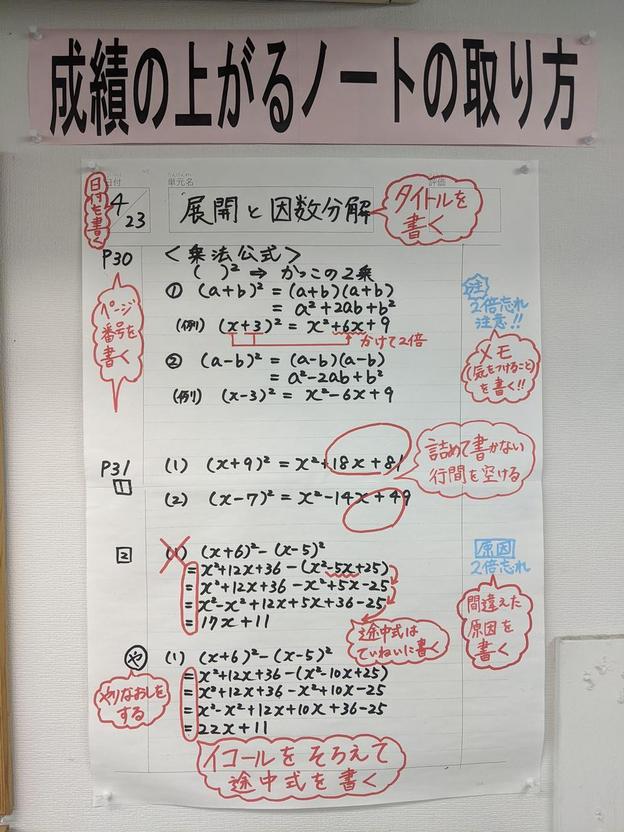 成績の上がるノートの取り方
日付
単元名
評価
日付を書く
4/23
展開と因数分解
タイトルを書く
P30
ページ番号を書く
<乗法公式>
( )² ⇒ かっこの2乗
① (a+b)² = (a+b)(a+b)
= a²+2ab+b²
(例) (x+3)² = x²+6x+9
かけて2倍
② (a-b)² = (a-b)(a-b)
= a²-2ab+b²
(例) (x-3)² = x²-6x+9
注
2倍忘れ
注意!!
メモ
(気をつけること)
を書く!!
P31
1
(1) (x+9)² = x²+18x+81
(2) (x-7)² = x²-14x+49
詰めて書かない
行間を空ける
2
(1) (x+6)²-(x-5)²
= x²+12x+36-(x²-5x+25)
= x²+12x+36-x²+5x-25
= x²-x²+12x+5x+36-25
= 17x+11
途中式は
ていねいに書く
原因
2倍忘れ
間違えた
原因を
書く
や
やりなおしを
する
(1) (x+6)²-(x-5)²
= x²+12x+36-(x²-10x+25)
= x²+12x+36-x²+10x-25
= x²-x²+12x+10x+36-25
= 22x+11
イコールをそろえて
途中式を書く